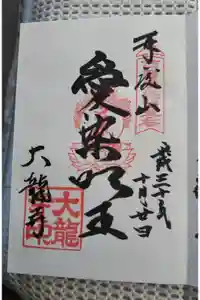 再度山
平成三十年
十月廿日
愛染明王
大龍寺